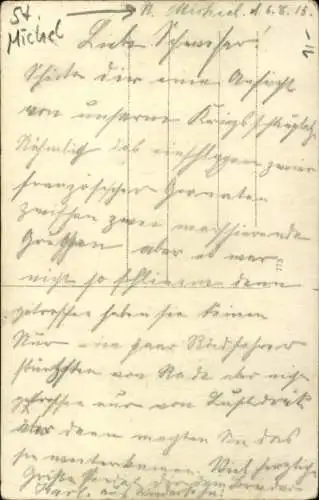 St Michel
St. Michel. d. 6.8.15.
Liebe Schwester!
Schicke dir eine Ansicht
von unserem Kriegsschauplatz
Nähmlich das einschlagen zweier
französischer Granaten
zwischen zwei marschierende
aber es war
nicht so schlimm denn
getroffen haben sie keinen
Nur ein paar Radfahrer
stürzten vom Rade aber nicht
getroffen nur von Luftdruck
aber dann machten Sie das
sie weiterkamen. Viel herzliche
Grüße
Karl
773